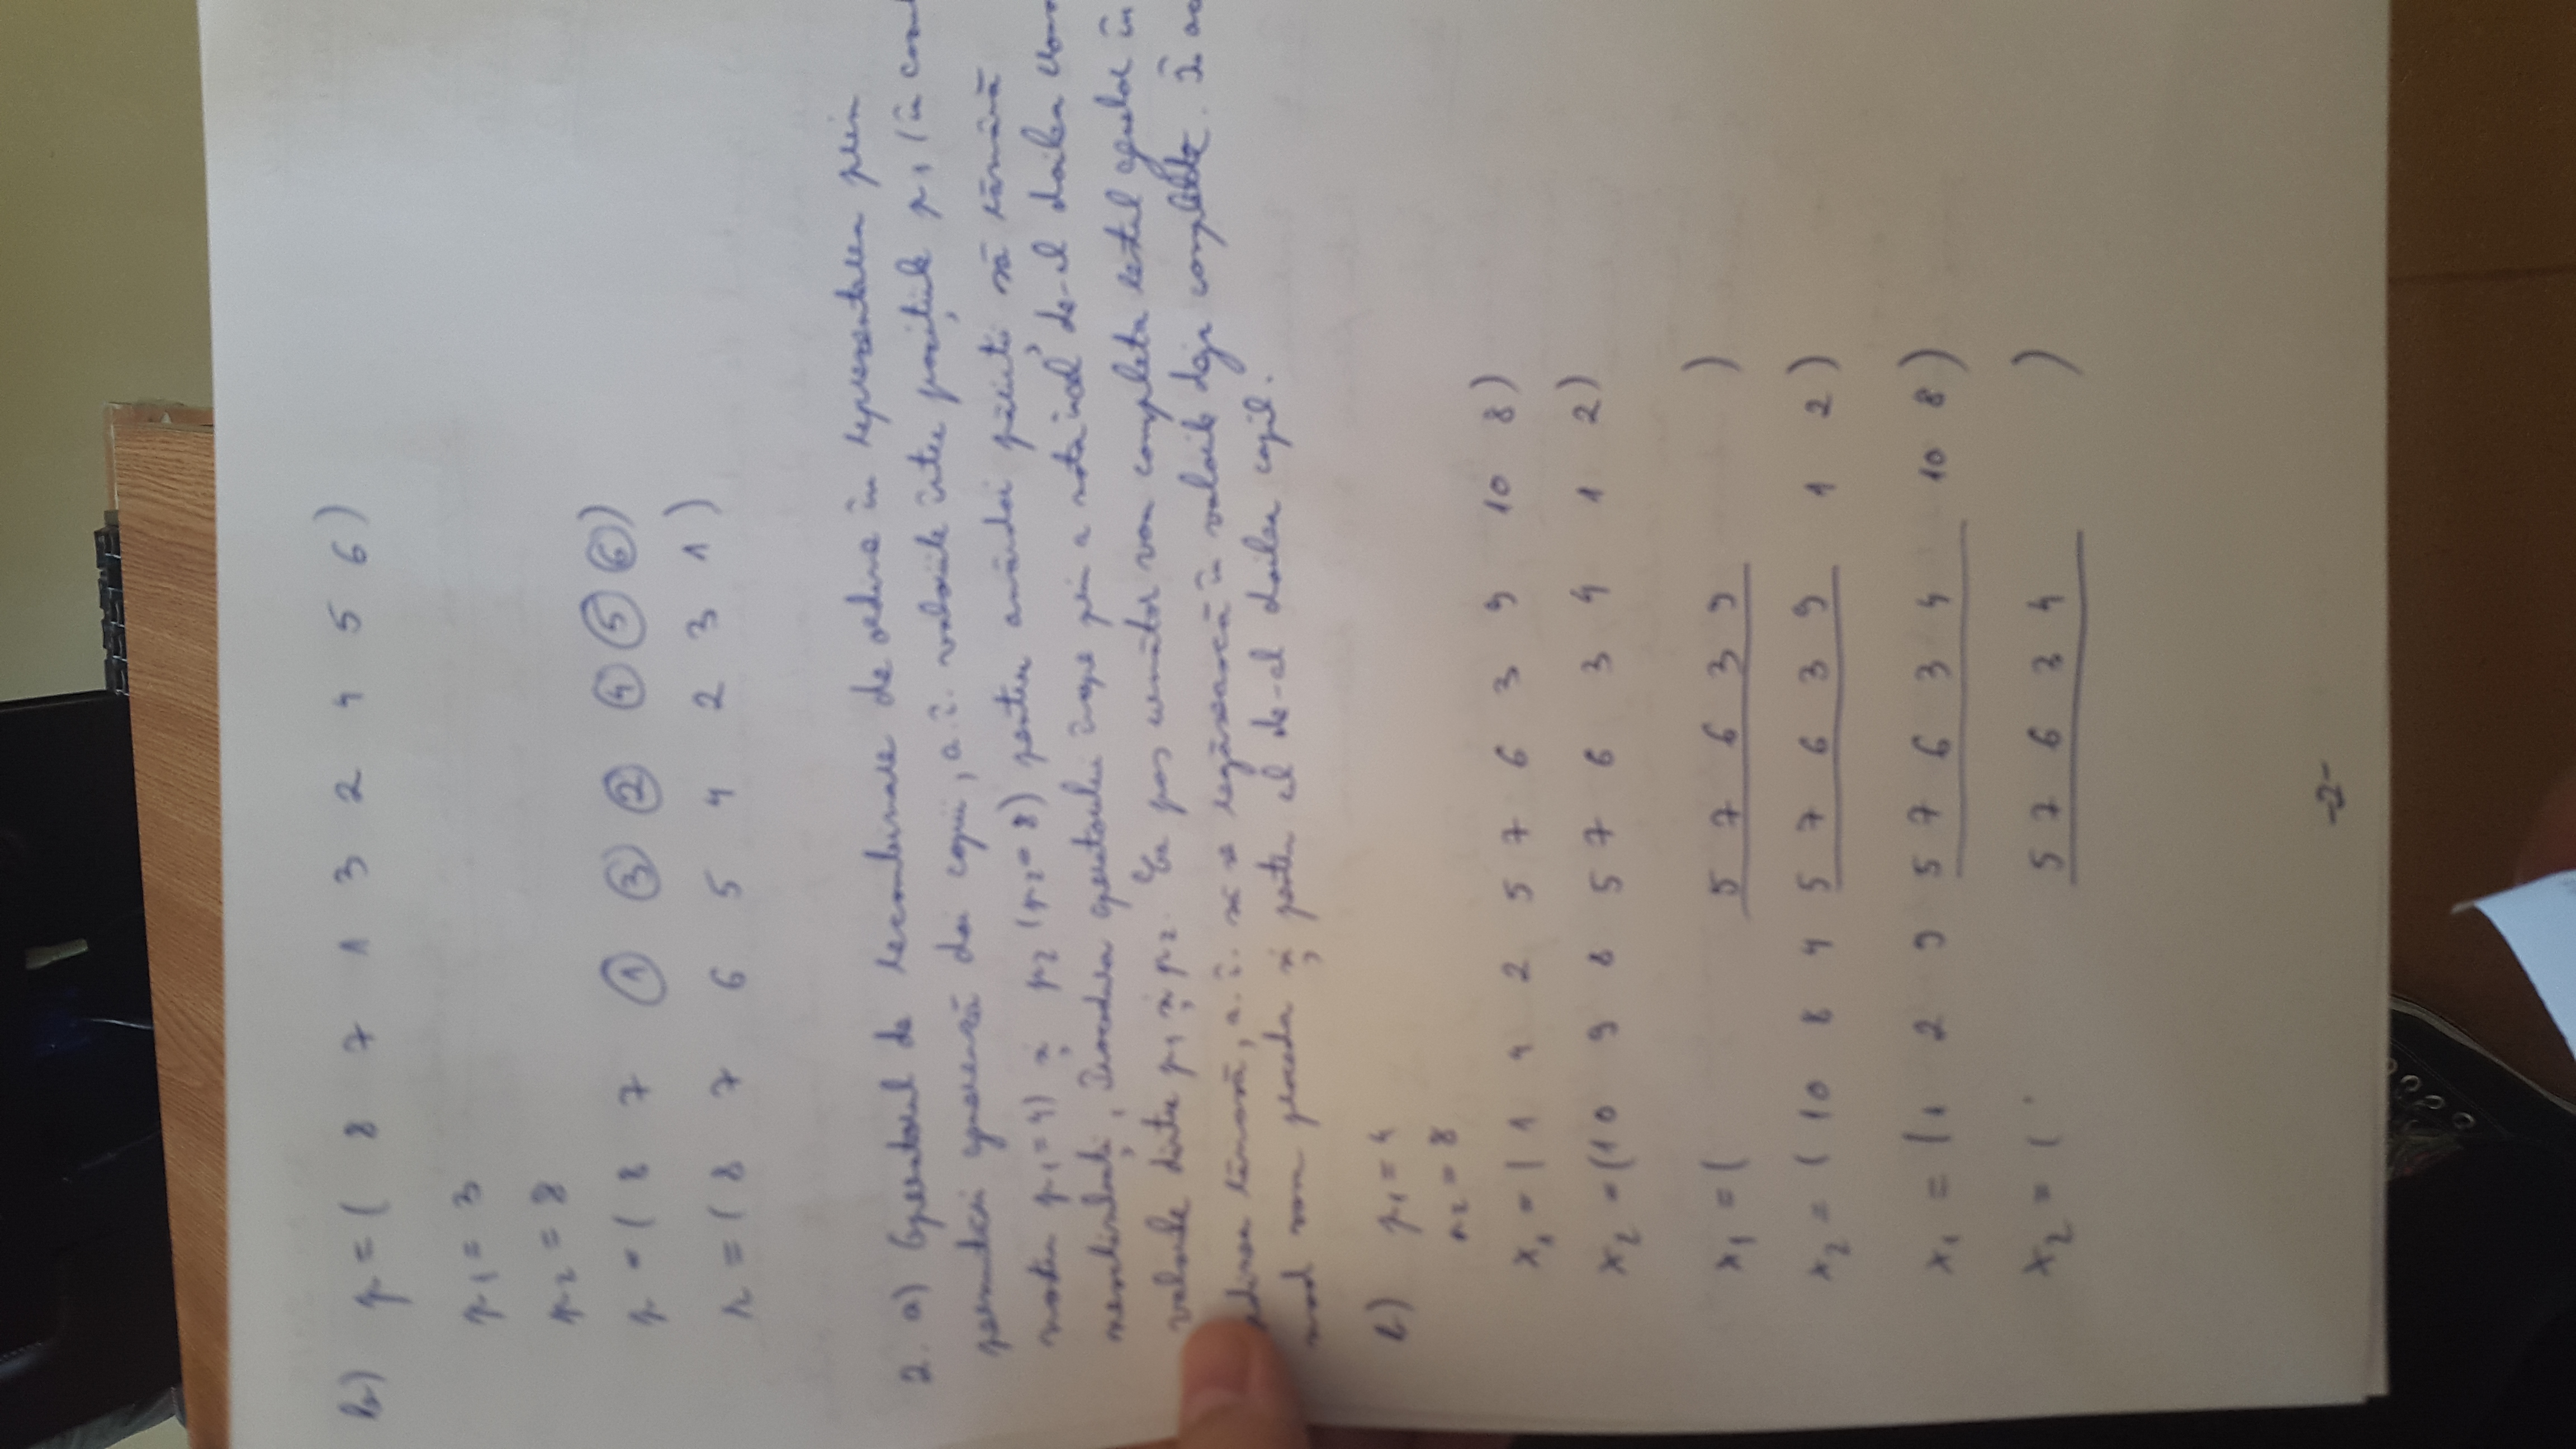 b) p = ( 8 7 1 3 2 4 5 6 )
p1 = 3
p2 = 8
p = ( 8 7 1 3 2 4 5 6 )
r = ( 8 7 6 5 4 2 3 1 )
2. a) Operatorul de recombinare de ordine în reprezentarea prin
permutări generează doi copii, a.î. valorile între pozițiile p1 (în cazul
nostru p1 = 4) și p2 (p2 = 8) pentru amândoi părinți să rămână
neschimbați. Procedura operatorului începe prin a muta de-al doilea
valorile dintre p1 și p2. La pas următor vom completa restul genelor în
rămasă, a.î. să se regăsească în valorile deja completate. În
mod vom proceda și pentru cel de-al doilea copil.
b) p1 = 4
p2 = 8
x1 = ( 1 4 2 5 7 6 3 9 10 8 )
x2 = ( 10 9 8 5 7 6 3 4 1 2 )
x1 = ( 5 7 6 3 9 )
x2 = ( 10 8 4 5 7 6 3 9 1 2 )
x1 = ( 1 2 9 5 7 6 3 4 10 8 )
x2 = ( 5 7 6 3 4 )
-2-